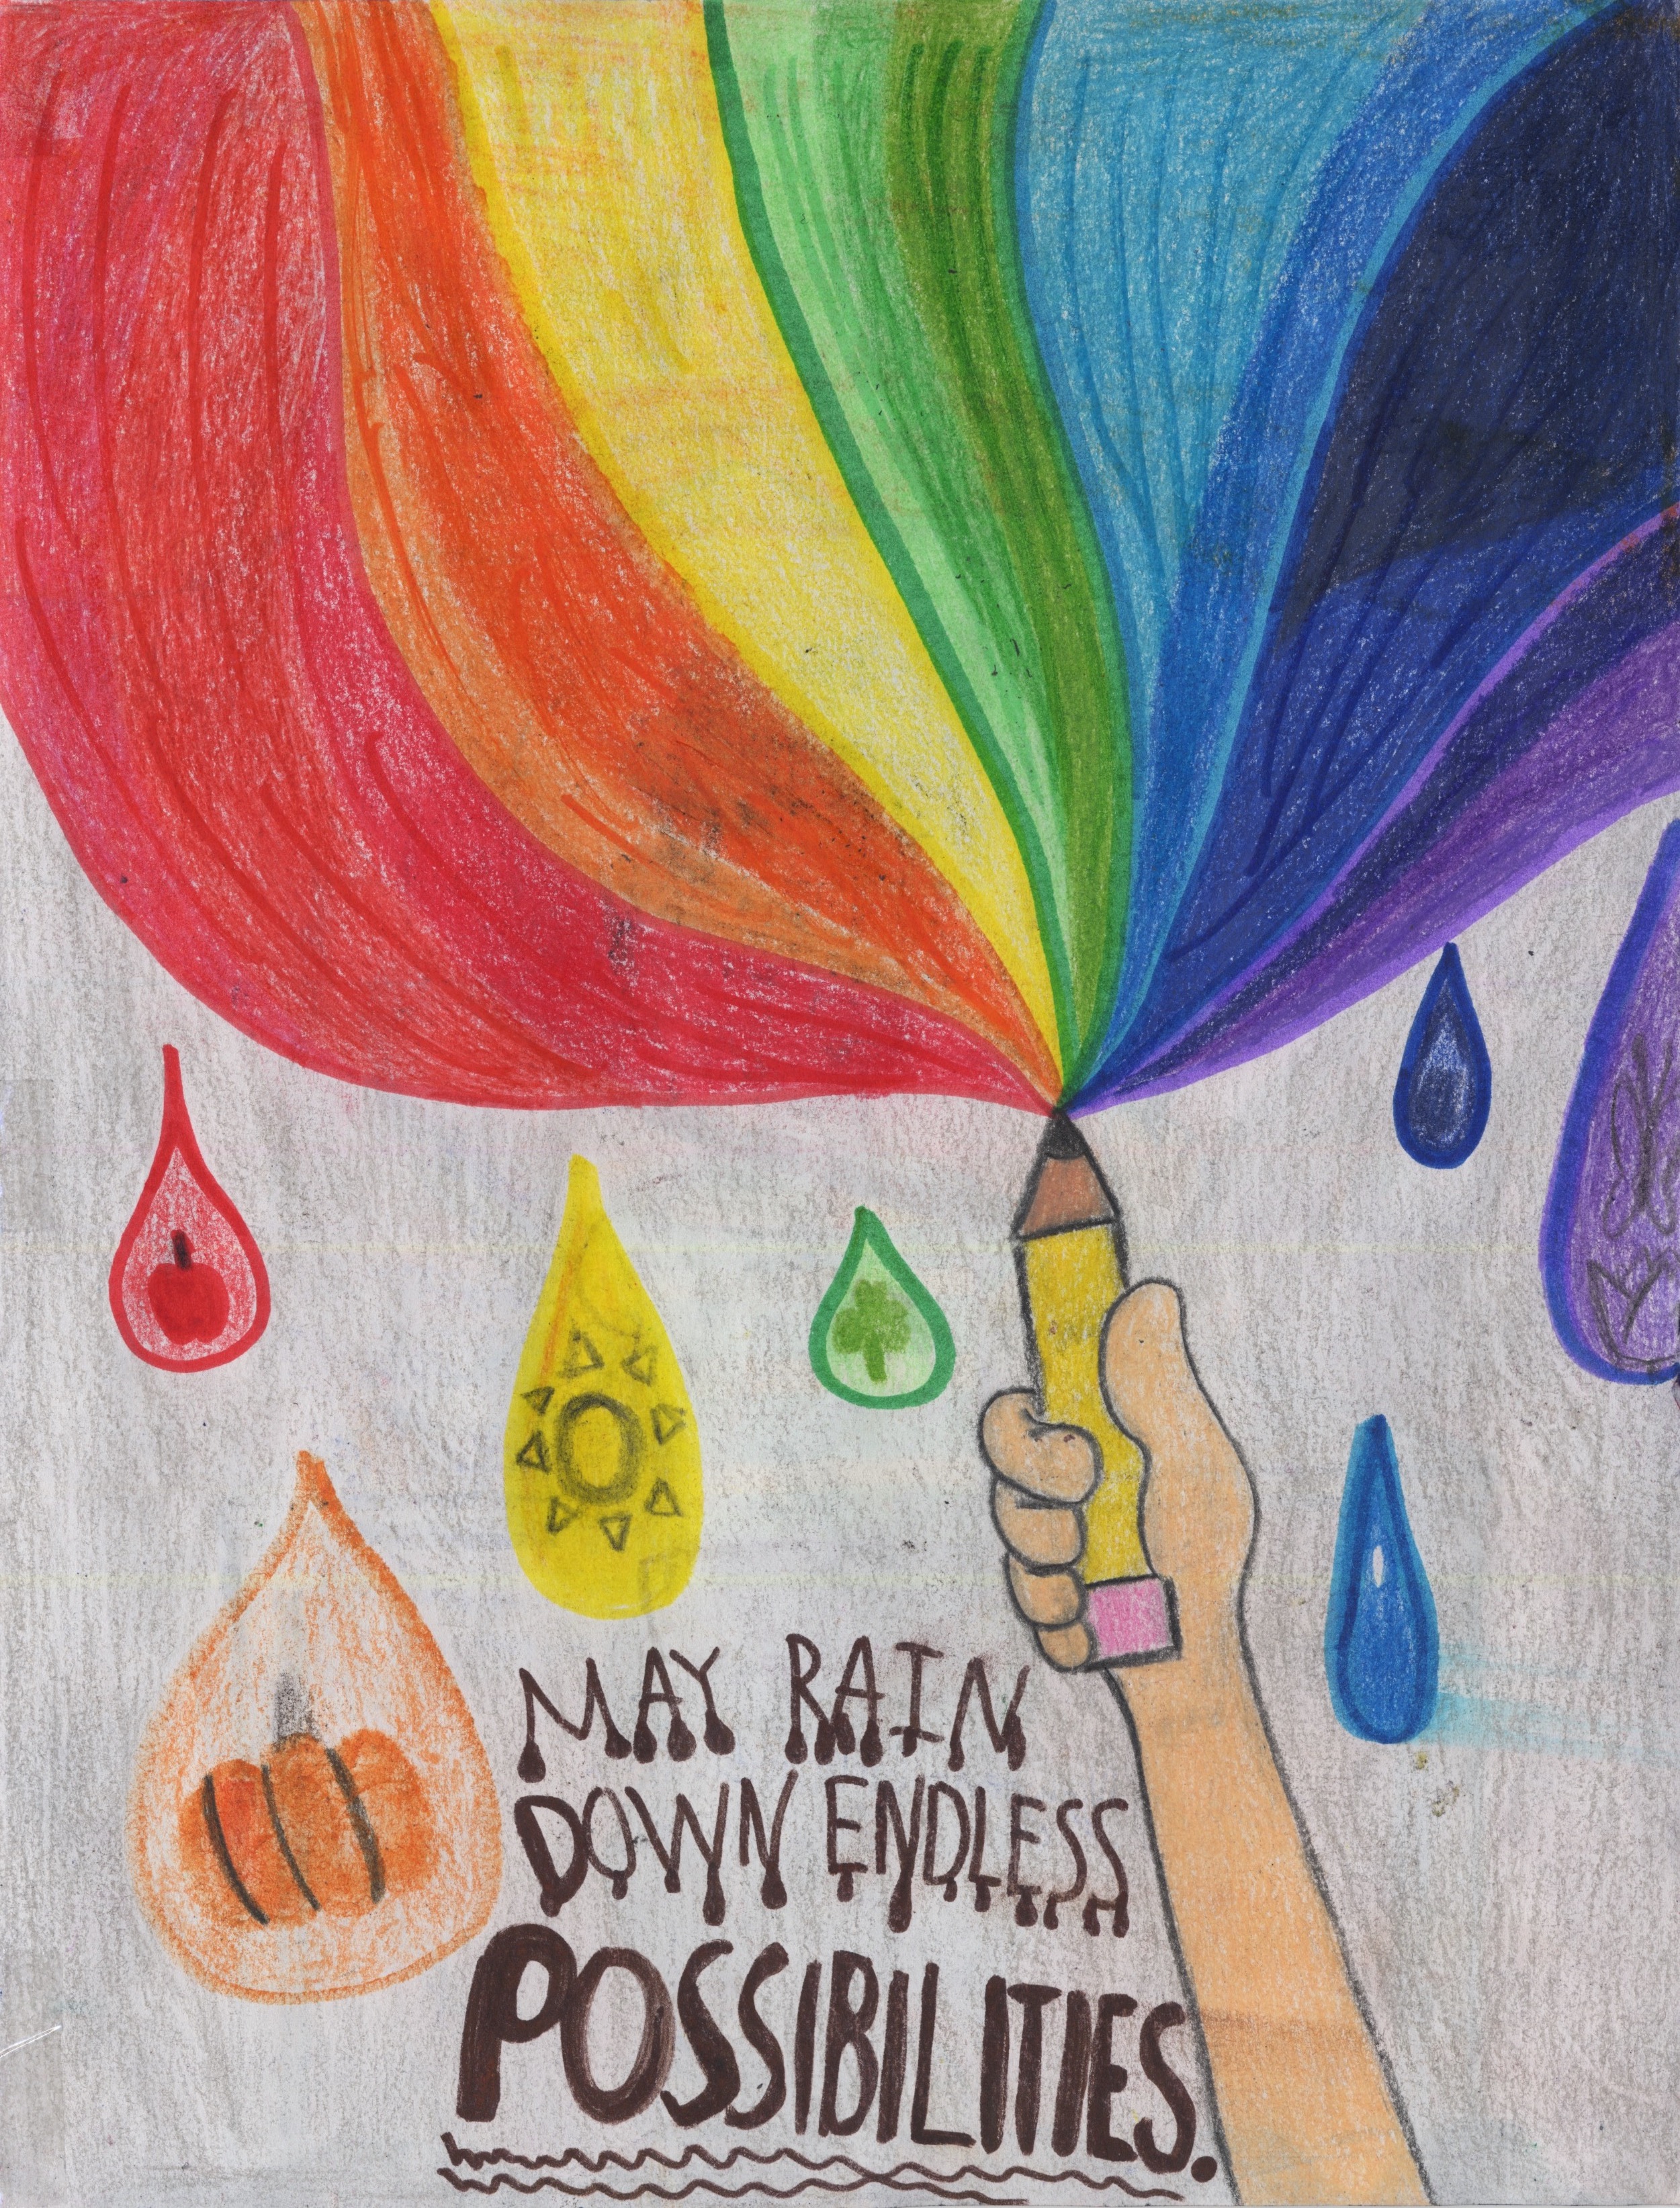 MAY RAIN
DOWN ENDLESS
POSSIBILITIES.